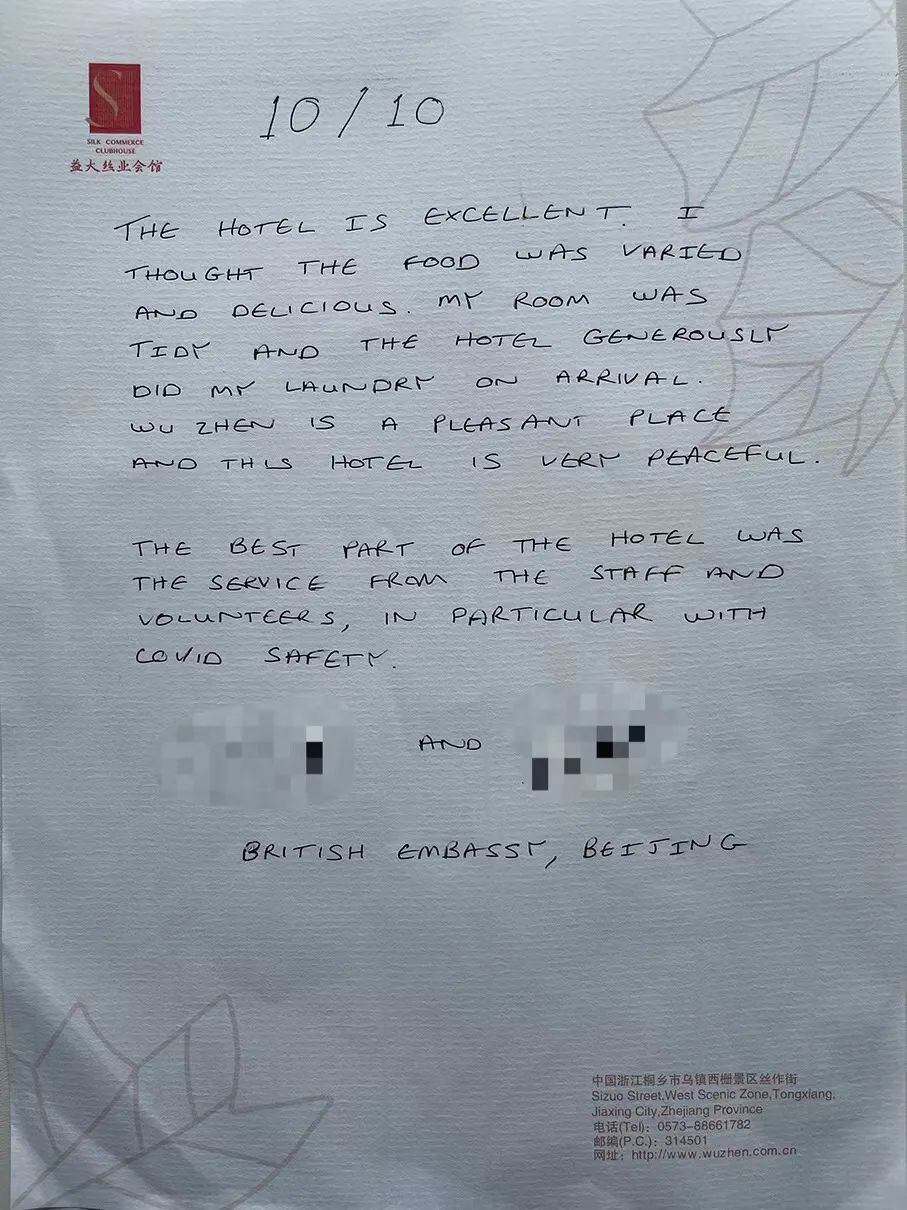 SILK COMMERCE
CLUBHOUSE
益大丝业会馆
10/10
THE HOTEL IS EXCELLENT. I
THOUGHT THE FOOD WAS VARIED
AND DELICIOUS. MY ROOM WAS
TIDY AND THE HOTEL GENEROUSLY
DID MY LAUNDRY ON ARRIVAL.
WU ZHEN IS A PLEASANT PLACE
AND THIS HOTEL IS VERY PEACEFUL.
THE BEST PART OF THE HOTEL WAS
THE SERVICE FROM THE STAFF AND
VOLUNTEERS, IN PARTICULAR WITH
COVID SAFETY.
AND
BRITISH EMBASSY, BEIJING
中国浙江桐乡市乌镇西栅景区丝作街
Sizuo Street,West Scenic Zone,Tongxiang,
Jiaxing City,Zhejiang Province
电话(Tel): 0573-88661782
邮编(P.C.): 314501
网址: http://www.wuzhen.com.cn